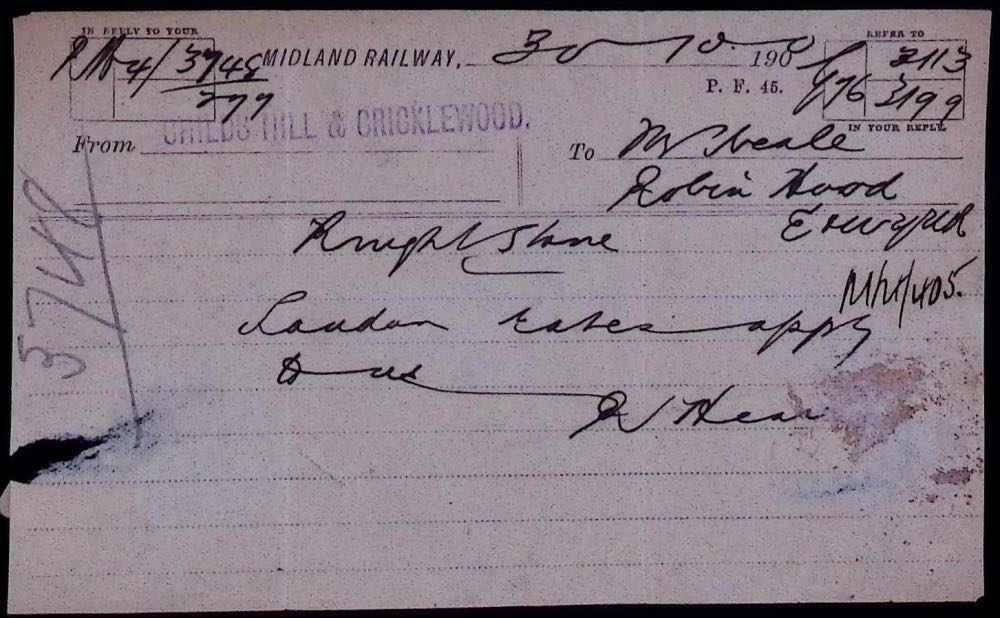 IN REPLY TO YOUR
4/3748
277
MIDLAND RAILWAY,
30 10 1908
P. F. 45.
REFER TO
2113
176 3199
IN YOUR REPLY
From CHILDS HILL & CRICKLEWOOD.
To Mr
Robin Hood
Knight Stone
London rates apply
to us
3748